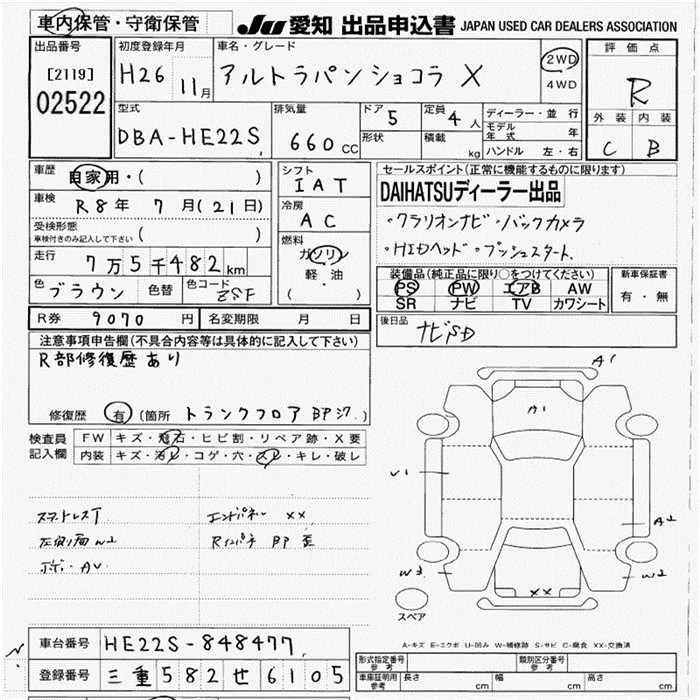 車内保管・守衛保管
JU 愛知 出品申込書 JAPAN USED CAR DEALERS ASSOCIATION
出品番号
[2119]
02522
初度登録年月
H26 11月
車名・グレード
アルトラパンショコラ X
2WD
4WD
評価点
R
外装 内装
C B
型式
DBA-HE22S
排気量
660 CC
ドア 5
形状
定員 4人
積載 kg
ディーラー・並行
モデル年式 年
ハンドル 左・右
車歴 自家用・( )
車検 R8年 7月(21日)
受検形態
車検付きのみ記入して下さい ( )
走行 7万5千482km
色 ブラウン 色替 色コード ZSF
シフト
IAT
冷房
AC
燃料
ガソリン
軽・油
( ・ )
セールスポイント(正常に機能するものに限ります)
DAIHATSUディーラー出品
・クラリオンナビ・バックカメラ
・HIDヘッド・プッシュスタート.
装備品(純正品に限り○をつけてください)
PS PW エアB AW
SR ナビ TV カワシート
新車保証書
有・無
後日品
ナビSD
R券 9070円 名変期限 月 日
注意事項申告欄(不具合内容等は具体的に記入して下さい)
R部修復歴あり
修復歴 有 (箇所 トランクフロア BPシワ.)
検査員
記入欄
FW キズ・飛石・ヒビ割・リペア跡・X要
内装 キズ・汚レ・コゲ・穴・スレ・キレ・破レ
エンドパネル XX
左側面W2
A1
A1
U1
A2
W3
W2
XX
スペア
A-キズ E-エクボ U-凹み W-補修跡 S-サビ C-腐食 XX-交換済
車台番号 HE22S-848477
登録番号 三重582せ6105
形式指定番号
参考
類別区分番号
参考
車庫証明用
参考
長さ cm 幅 cm 高さ cm